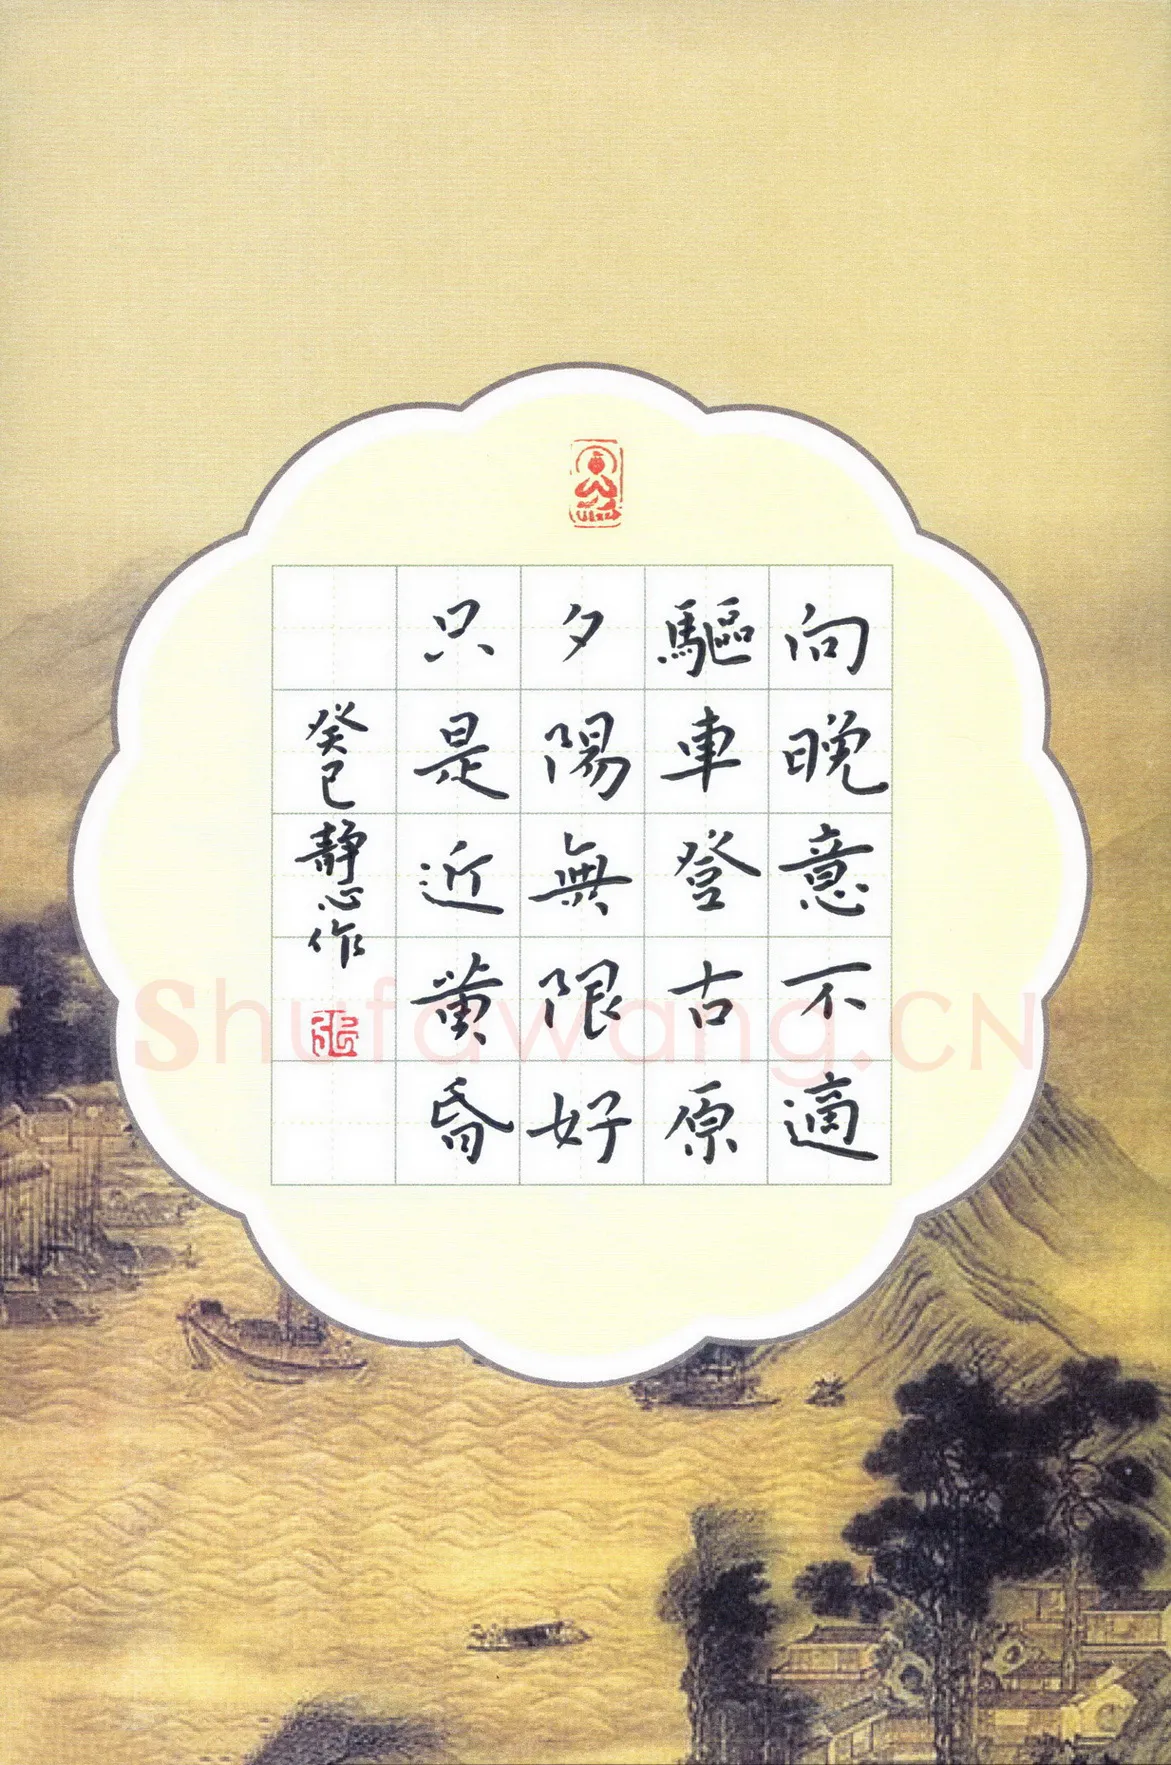 向晚意不適
驅車登古原
夕陽無限好
只是近黄昏
癸巳靜心作
張
Shufawang.CN